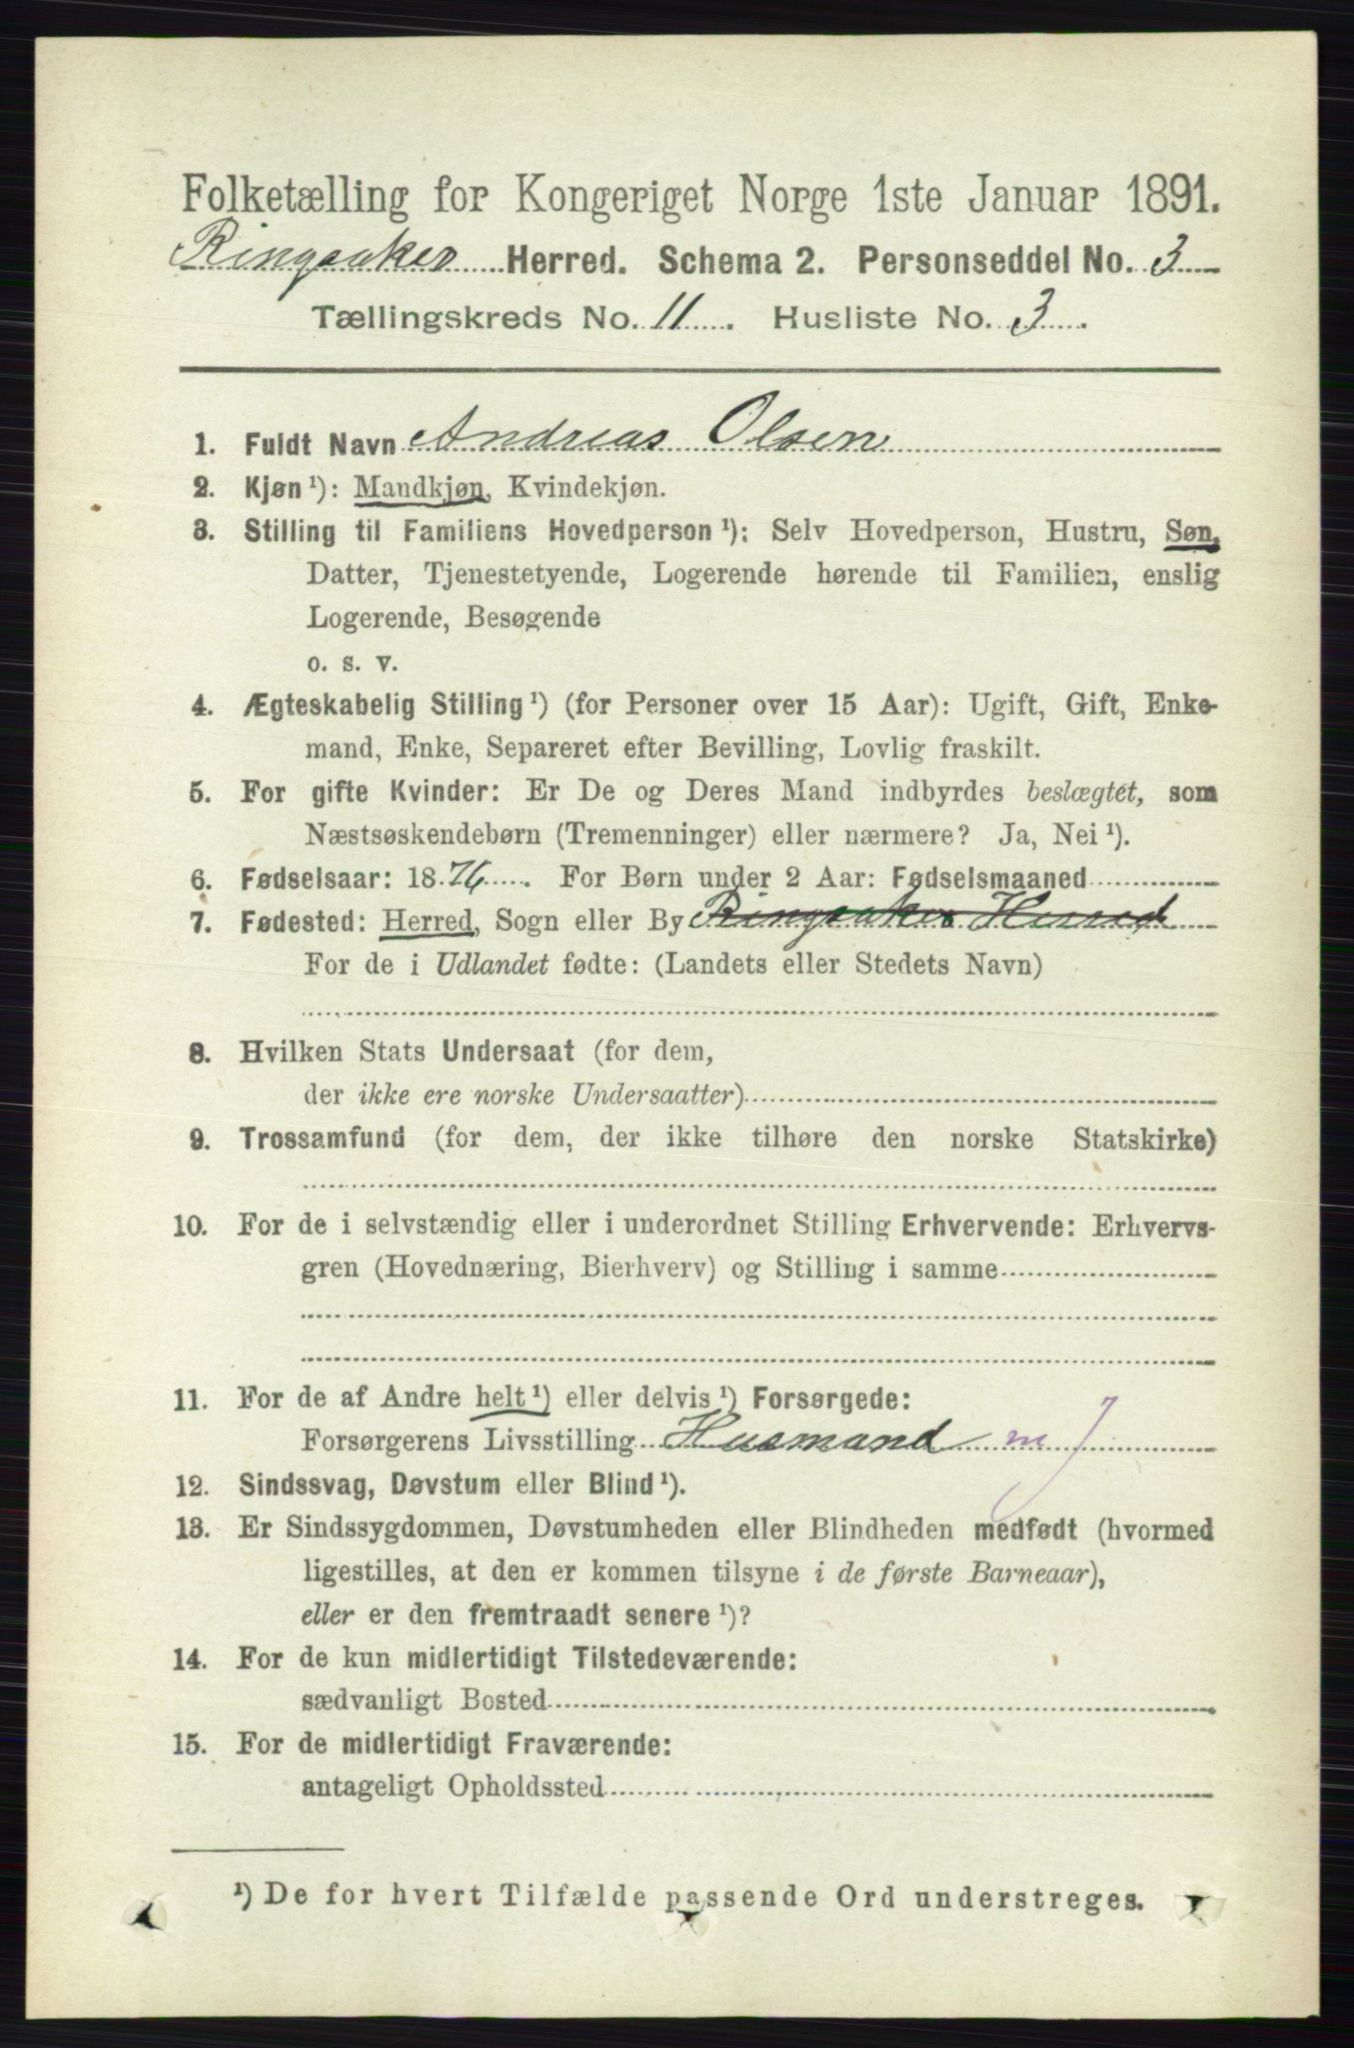 Folketælling for Kongeriget Norge 1ste Januar 1891.
Ringsaker Herred. Schema 2. Personseddel No. 3
Tællingskreds No. 11. Husliste No. 3.
1. Fuldt Navn Andreas Olsen
2. Kjøn ¹): Mandkjøn, Kvindekjøn.
3. Stilling til Familiens Hovedperson ¹): Selv Hovedperson, Hustru, Søn,
Datter, Tjenestetyende, Logerende hørende til Familien, enslig
Logerende, Besøgende
o. s. v.
4. Ægteskabelig Stilling ¹) (for Personer over 15 Aar): Ugift, Gift, Enke-
mand, Enke, Separeret efter Bevilling, Lovlig fraskilt.
5. For gifte Kvinder: Er De og Deres Mand indbyrdes beslægtet, som
Næstsøskendebørn (Tremenninger) eller nærmere? Ja, Nei ¹).
6. Fødselsaar: 1876. For Børn under 2 Aar: Fødselsmaaned
7. Fødested: Herred, Sogn eller By Ringsaker Herred
For de i Udlandet fødte: (Landets eller Stedets Navn)
8. Hvilken Stats Undersaat (for dem,
der ikke ere norske Undersaatter)
9. Trossamfund (for dem, der ikke tilhøre den norske Statskirke)
10. For de i selvstændig eller i underordnet Stilling Erhvervende: Erhvervs-
gren (Hovednæring, Bierhverv) og Stilling i samme
11. For de af Andre helt ¹) eller delvis ¹) Forsørgede:
Forsørgerens Livsstilling Husmand m J
12. Sindssvag, Døvstum eller Blind ¹).
13. Er Sindssygdommen, Døvstumheden eller Blindheden medfødt (hvormed
ligestilles, at den er kommen tilsyne i de første Barneaar),
eller er den fremtraadt senere ¹)?
14. For de kun midlertidigt Tilstedeværende:
sædvanligt Bosted
15. For de midlertidigt Fraværende:
antageligt Opholdssted
¹) De for hvert Tilfælde passende Ord understreges.